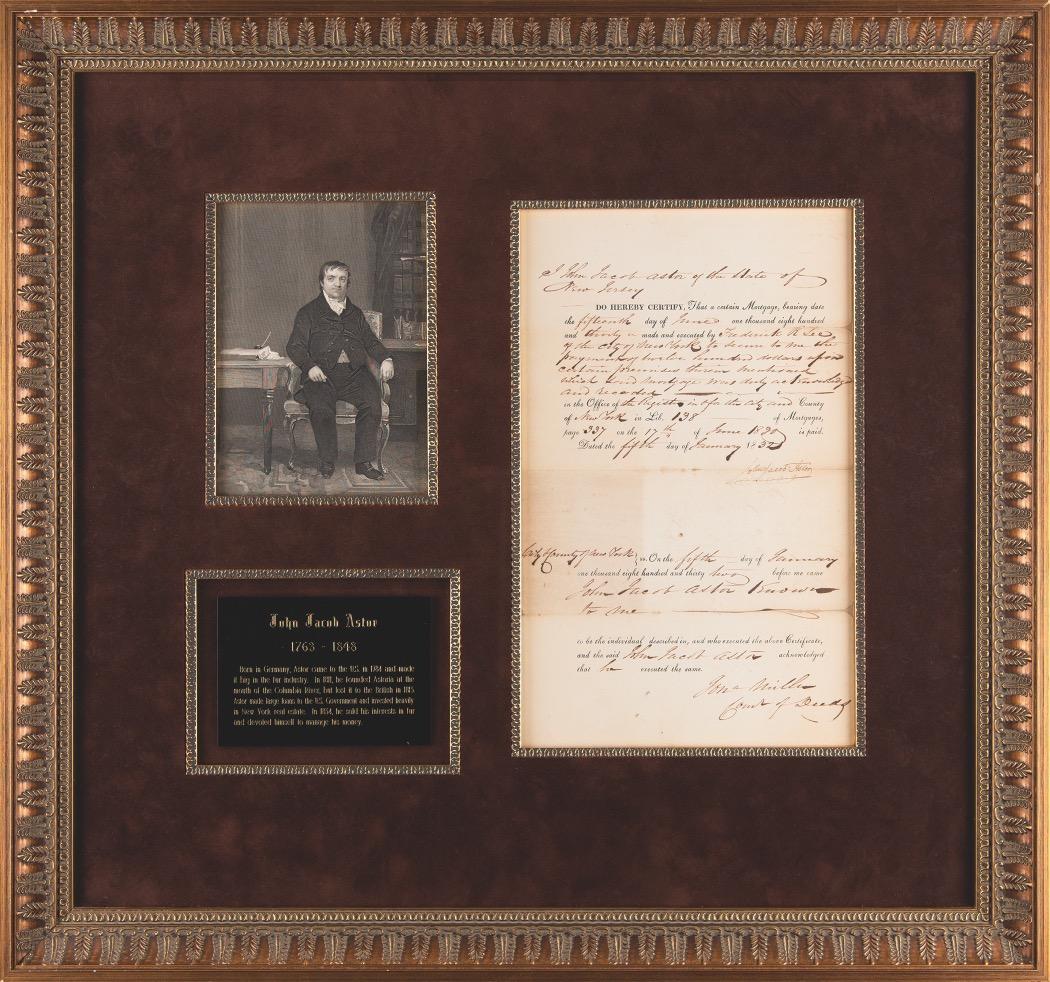 John Jacob Astor
1763 - 1848
Born in Germany, Astor came to the U.S. in 1784 and made
it big in the fur industry. In 1811, he founded Astoria at the
mouth of the Columbia River, but lost it to the British in 1813.
Astor made large loans to the U.S. Government and invested heavily
in New York real estate. In 1834, he sold his interests in fur
and devoted himself to manage his money.
I John Jacob Astor of the State of
New Jersey
DO HEREBY CERTIFY, That a certain Mortgage, bearing date
the fifteenth day of June one thousand eight hundred
and thirty made and executed by Frederick R Lee
of the City of New York to secure to me the
payment of twelve hundred dollars upon
certain premises therein mentioned
which said mortgage was duly acknowledged
and recorded
in the Office of the Register in & for the City and County
of New York in Lib. 138 of Mortgages,
page 337 on the 17th of June 1830 is paid.
Dated the fifth day of January 1832
John Jacob Astor
City & County of New York } ss. On the fifth day of January
one thousand eight hundred and thirty two before me came
John Jacob Astor known
to me
to be the individual described in, and who executed the above Certificate,
and the said John Jacob Astor acknowledged
that he executed the same.
Jona Miller
Comr of Deeds